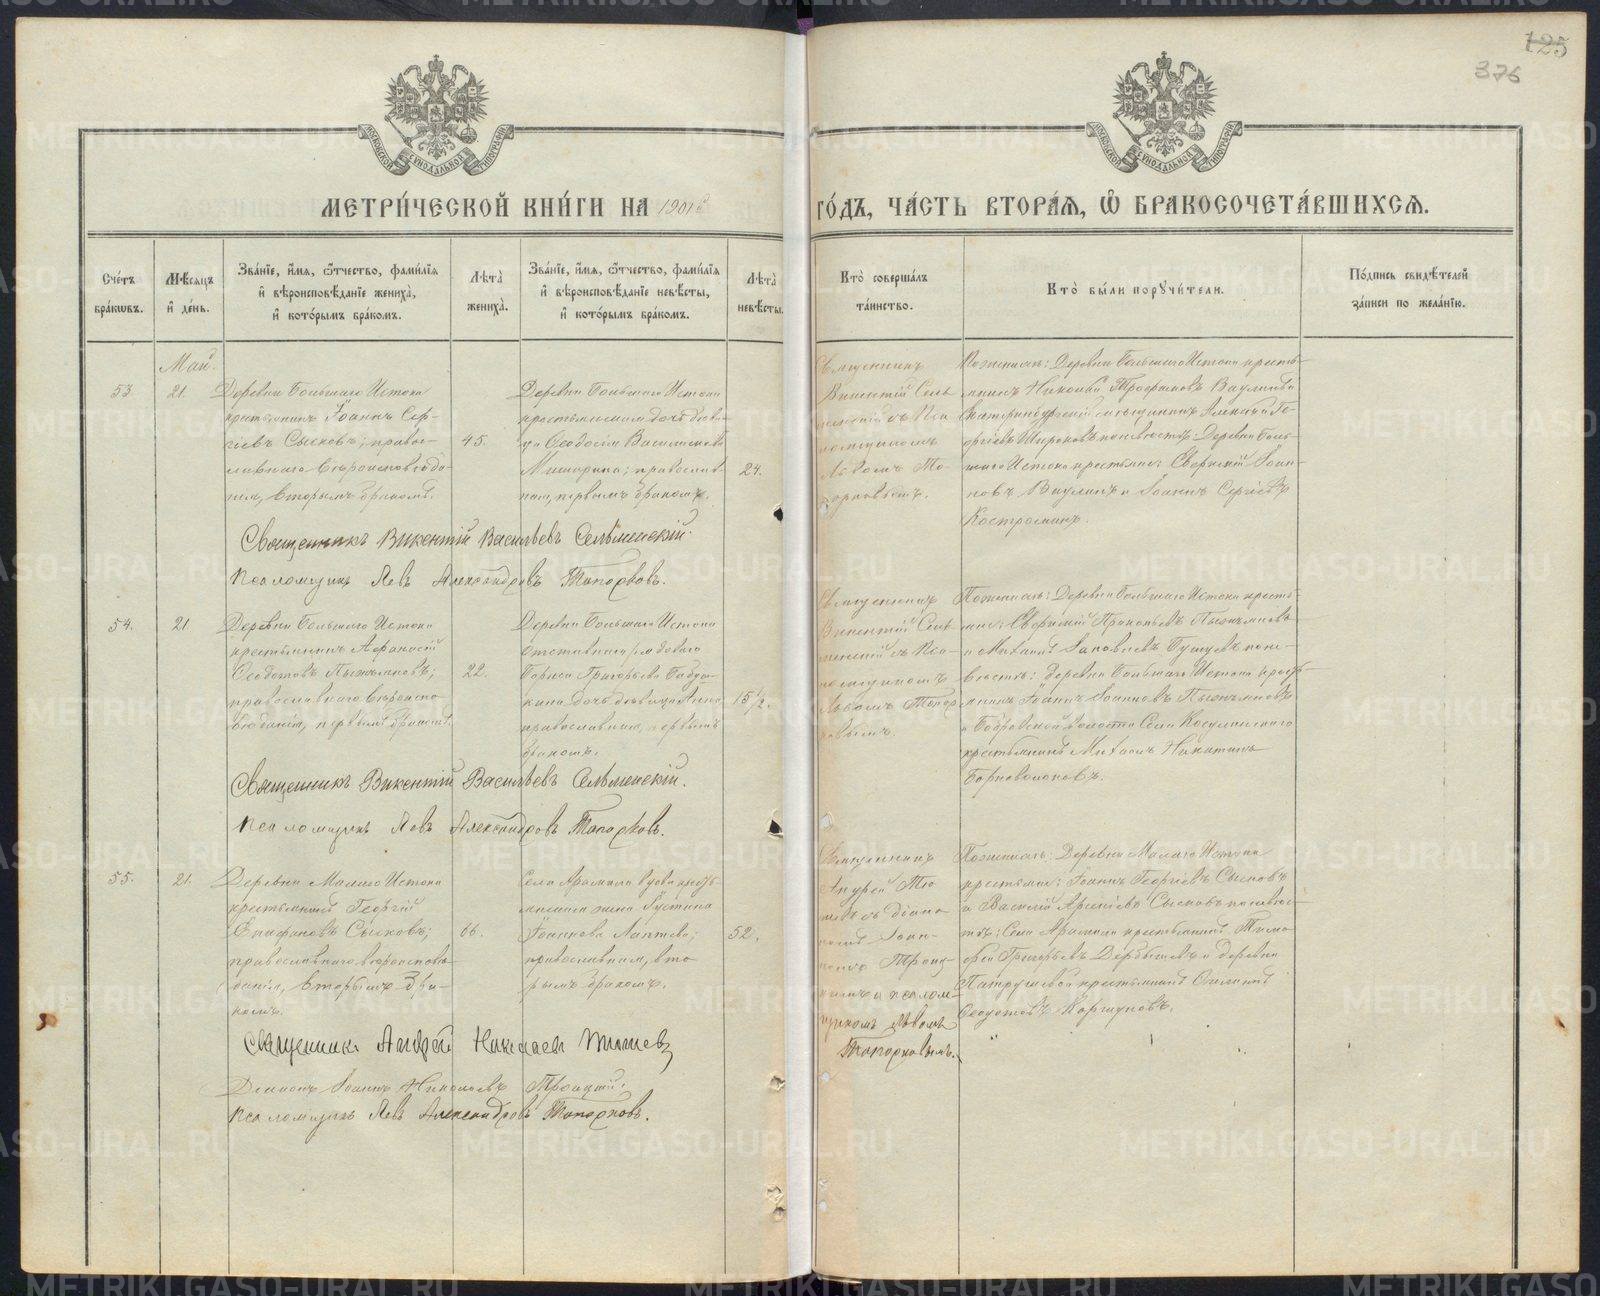 125
376
МОСКОВСКОЙ СѴНОДАЛЬНОЙ ТИПОГРАФІИ
МОСКОВСКОЙ СѴНОДАЛЬНОЙ ТИПОГРАФІИ
МЕТРИ́ЧЕСКОЙ КНИ́ГИ НА 1901й
ГО́ДЪ, ЧА́СТЬ ВТОРА́Я, Ѡ҆ БРАКОСОЧЕТА́ВШИХСЯ.
Сче́тъ бра́кѡвъ.
Мѣ́сяцъ и҆ де́нь.
Зва́нїе, и҆́мя, ѻ҆́тчество, фами́лїя
и҆ вѣроисповѣ́данїе жениха̀,
и҆ кото́рымъ бра́комъ.
Лѣта̀ жениха̀.
Зва́нїе, и҆́мя, ѻ҆́тчество, фами́лїя
и҆ вѣроисповѣ́данїе невѣ́сты,
и҆ кото́рымъ бра́комъ.
Лѣта̀ невѣ́сты.
Кто̀ соверша́лъ
та́инство.
Кто̀ бы́ли порꙋчи́тели.
По́дпись свидѣ́телей
за́писи по жела́нїю.
Май.
53
21.
Деревни Большаго Истока
крестьянинъ Іоаннъ Сер-
гіевъ Сысковъ; право-
славнаго вѣроисповѣда-
нія, вторымъ бракомъ.
45.
Деревни Большаго Истока
крестьянская дочь дѣви-
ца Ѳеодосія Васильева
православ-
ная, первымъ бракомъ.
24.
Священникъ
Викентій Сель-
менскій съ Пса-
ломщикомъ
Львомъ То-
порковымъ.
По женихѣ: Деревни Большаго Истока кресть-
янинъ Николай Трофимовъ Ваулинъ и
Екатеринбургскій мѣщанинъ Алексѣй Ге-
оргіевъ Широковъ по невѣстѣ: Деревни Боль-
шаго Истока крестьяне: Іоан-
новъ Ваулинъ и Іоаннъ Сергіевъ
Костроминъ.
Священникъ Викентій Васильевъ Сельменскій.
Псаломщикъ Левъ Александровъ Топорковъ.
54.
21
Деревни Большаго Истока
крестьянинъ Аѳанасій
Ѳеодотовъ Пьянковъ;
православнаго вѣроиспо-
вѣданія, первымъ бракомъ.
22.
Деревни Большаго Истока
отставнаго рядоваго
Бориса Григорьева
дочь дѣвица Анна,
православная, первымъ
бракомъ.
15½.
Священникъ
Викентій Сель-
менскій съ Пса-
ломщикомъ
Львомъ Топор-
ковымъ.
По женихѣ: Деревни Большаго Истока кресть-
яне: Прокопьевъ
и Михаилъ по не-
вѣстѣ: Деревни Большаго Истока крест-
янинъ Іоаннъ Іоанновъ
и Бобровской волости Села Косулинскаго
крестьянинъ Михаилъ Никитинъ
Черноволоковъ.
Священникъ Викентій Васильевъ Сельменскій.
Псаломщикъ Левъ Александровъ Топорковъ.
55.
21.
Деревни Малаго Истока
крестьянинъ Георгій
Епифановъ Сысковъ;
православнаго вѣроисповѣ-
данія, вторымъ бра-
комъ.
66.
Села Арамили вдова кресть-
янская жена Іустина
Іоаннова Лаптева;
православная, вто-
рымъ бракомъ.
52.
Священникъ
Андрей
съ діако-
номъ Іоан-
номъ Троиц-
кимъ и псалом-
щикомъ Львомъ
Топорковымъ.
По женихѣ: Деревни Малаго Истока
крестьяне: Іоаннъ Георгіевъ Сысковъ
и Василій Арсеніевъ Сысковъ по невѣс-
тѣ: Села Арамили крестьянинъ Тимо-
ѳей Григорьевъ Дербышевъ и деревни
Патрушевой крестьянинъ
Ѳеодотовъ Коршуновъ.
Священникъ Андрей Николаевъ
Діаконъ Іоаннъ Николаевъ Троицкій.
Псаломщикъ Левъ Александровъ Топорковъ.
METRIKI.GASO-URAL.RU